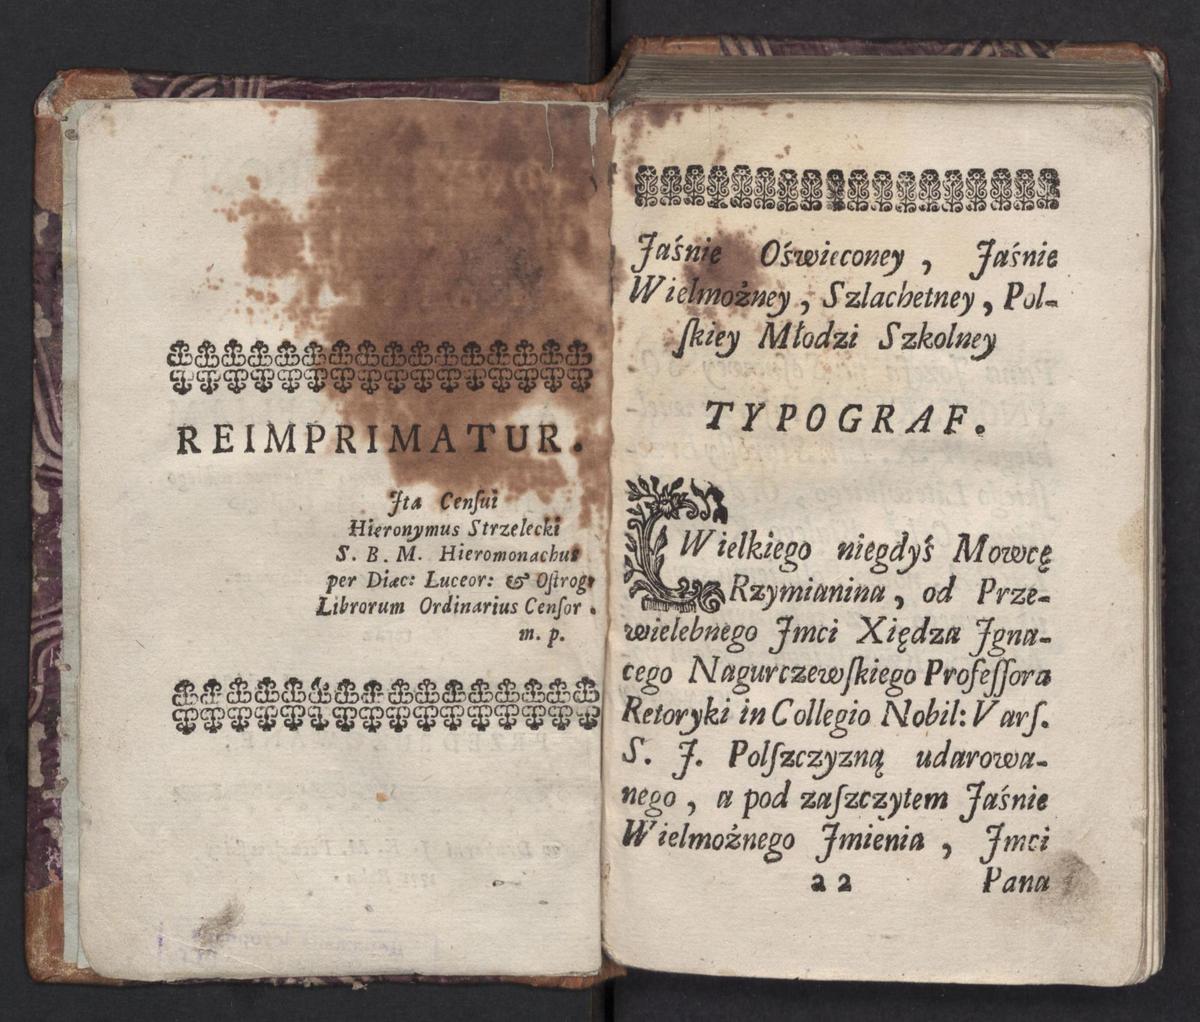 REIMPRIMATUR.
Jta Cenſui
Hieronymus Strzelecki
S. B. M. Hieromonachus
per Diæc: Luceor: & Oſtrog:
Librorum Ordinarius Cenſor.
m. p.
Jaśnie Oświeconey, Jaśnie
Wielmożney, Szlachetney, Pol-
ſkiey Młodzi Szkolney
TYPOGRAF.
Wielkiego niegdyś Mowcę
Rzymianina, od Prze-
wielebnego Jmci Xiędza Jgna-
cego Nagurczewſkiego Profeſſora
Retoryki in Collegio Nobil: Varſ.
S. J. Polſzczyzną udarowa-
nego, a pod zaſzczytem Jaśnie
Wielmożnego Jmienia, Jmci
a2 Pana